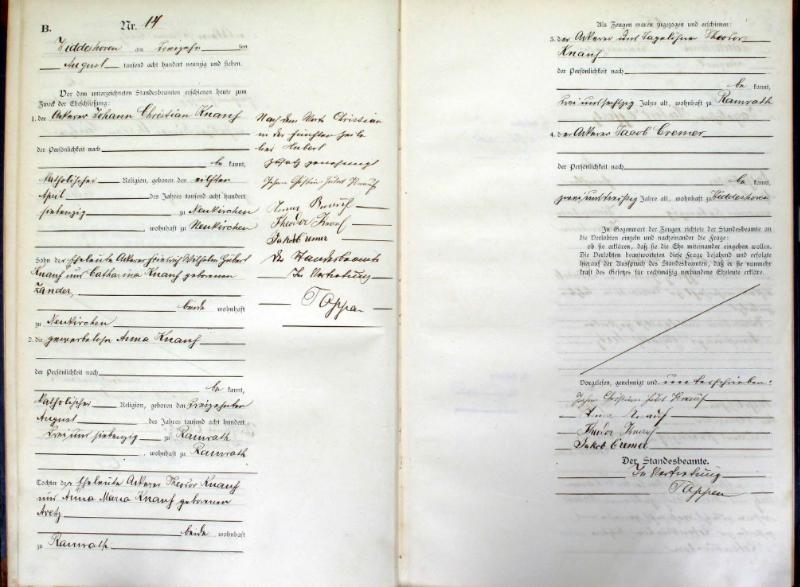 B.
Nr. 14
Hiddeshoven am dreizehn ten
August tausend acht hundert neunzig und sieben.
Vor dem unterzeichneten Standesbeamten erschienen heute zum
Zweck der Eheschließung:
1. der Ackerer Johann Christian Knauf
der Persönlichkeit nach
be kannt,
katholischer Religion, geboren den elften
April des Jahres tausend acht hundert
siebenzig zu Neukirchen
, wohnhaft zu Neukirchen
Sohn der Eheleute Ackerer Friedrich Wilhelm Hubert
Knauf und Catharina Knauf geborenen
Zander
beide wohnhaft
zu Neukirchen
2. die gewerbelose Anna Knauf
der Persönlichkeit nach
be kannt,
katholischer Religion, geboren den dreizehnten
August des Jahres tausend acht hundert
drei und siebenzig zu Ramrath
, wohnhaft zu Ramrath
Tochter der Eheleute Ackerer Theodor Knauf
und Anna Maria Knauf geborenen
Aretz
beide wohnhaft
zu Ramrath
Nach dem Worte Christian
in der fünften Zeile
hier Hubert
Zusatz genehmigt
Johann Christian Hubert Knauf
Anna Knauf
Theodor Knauf
Jakob Cremer
Der Standesbeamte
In Vertretung
Tappen
Als Zeugen waren zugezogen und erschienen:
3. der Ackerer und Tagelöhner Theodor
Knauf
der Persönlichkeit nach
be kannt,
drei und sechzig Jahre alt, wohnhaft zu Ramrath
4. der Ackerer Jacob Cremer
der Persönlichkeit nach
be kannt,
zwei und dreißig Jahre alt, wohnhaft zu Hiddeshoven
In Gegenwart der Zeugen richtete der Standesbeamte an
die Verlobten einzeln und nacheinander die Frage:
ob sie erklären, daß sie die Ehe miteinander eingehen wollen.
Die Verlobten beantworteten diese Frage bejahend und erfolgte
hierauf der Ausspruch des Standesbeamten, daß er sie nunmehr
kraft des Gesetzes für rechtmäßig verbundene Eheleute erkläre.
Vorgelesen, genehmigt und unterschrieben:
Johann Christian Hubert Knauf
Anna Knauf
Theodor Knauf
Jakob Cremer
Der Standesbeamte.
In Vertretung
Tappen